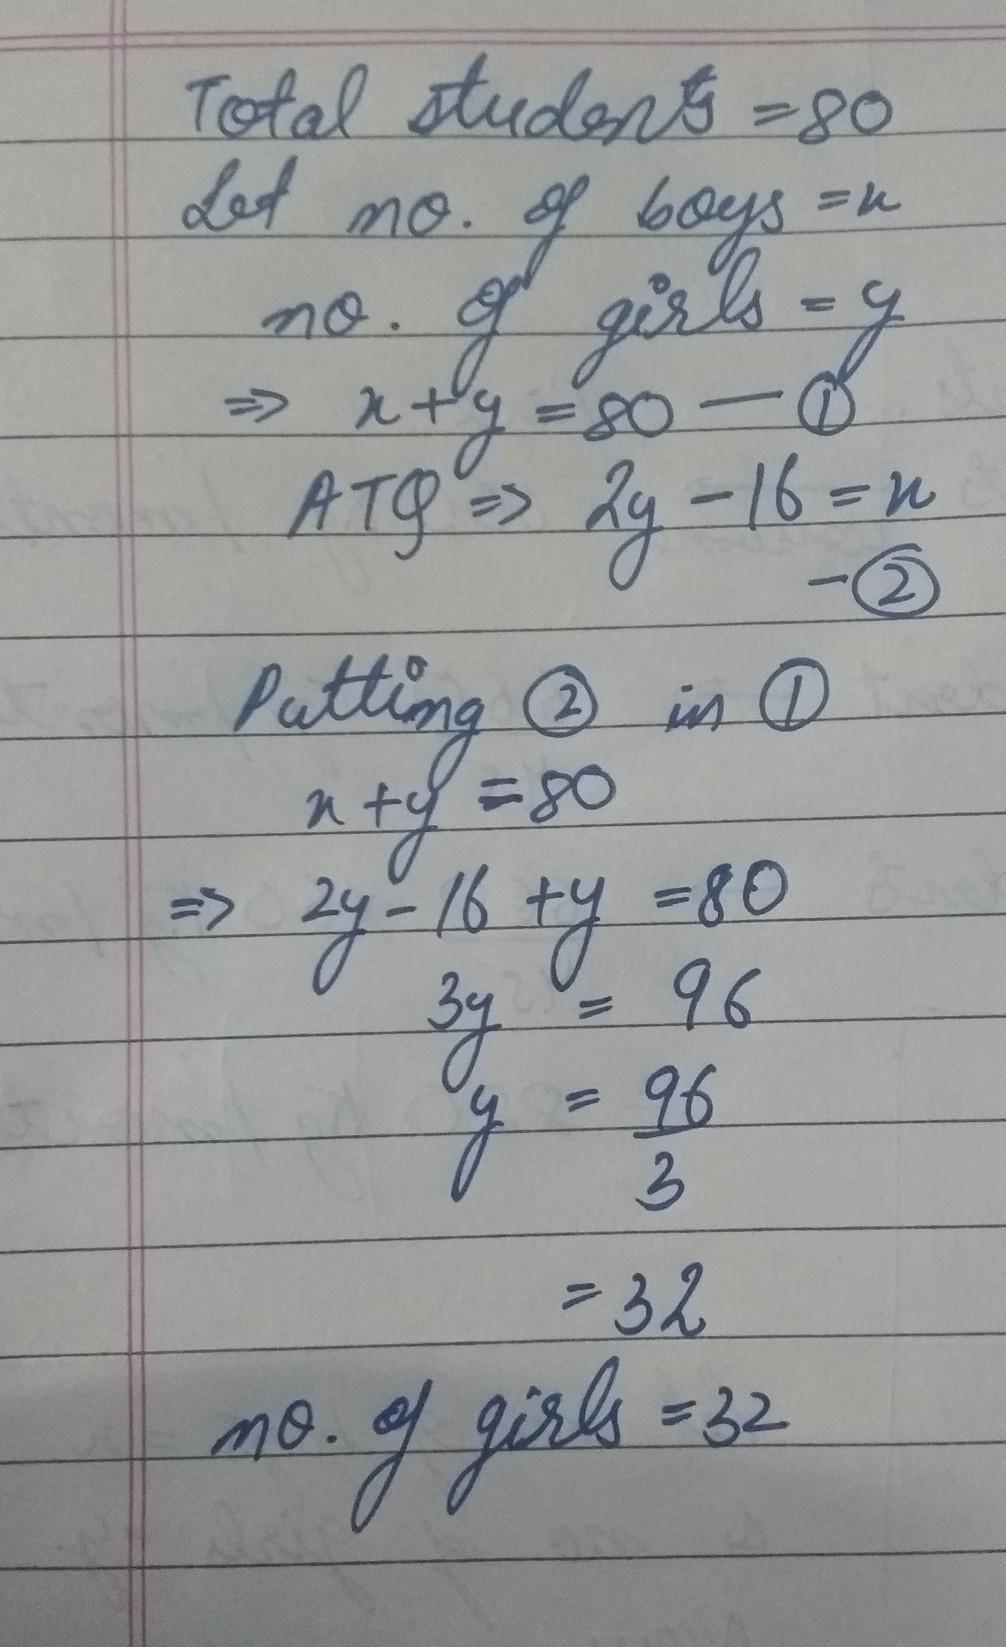 Total students = 80
Let no. of boys = x
no. of girls = y
⇒ x + y = 80 — ①
ATQ ⇒ 2y - 16 = x
- ②
Putting ② in ①
x + y = 80
⇒ 2y - 16 + y = 80
3y = 96
y = 96
3
= 32
no. of girls = 32